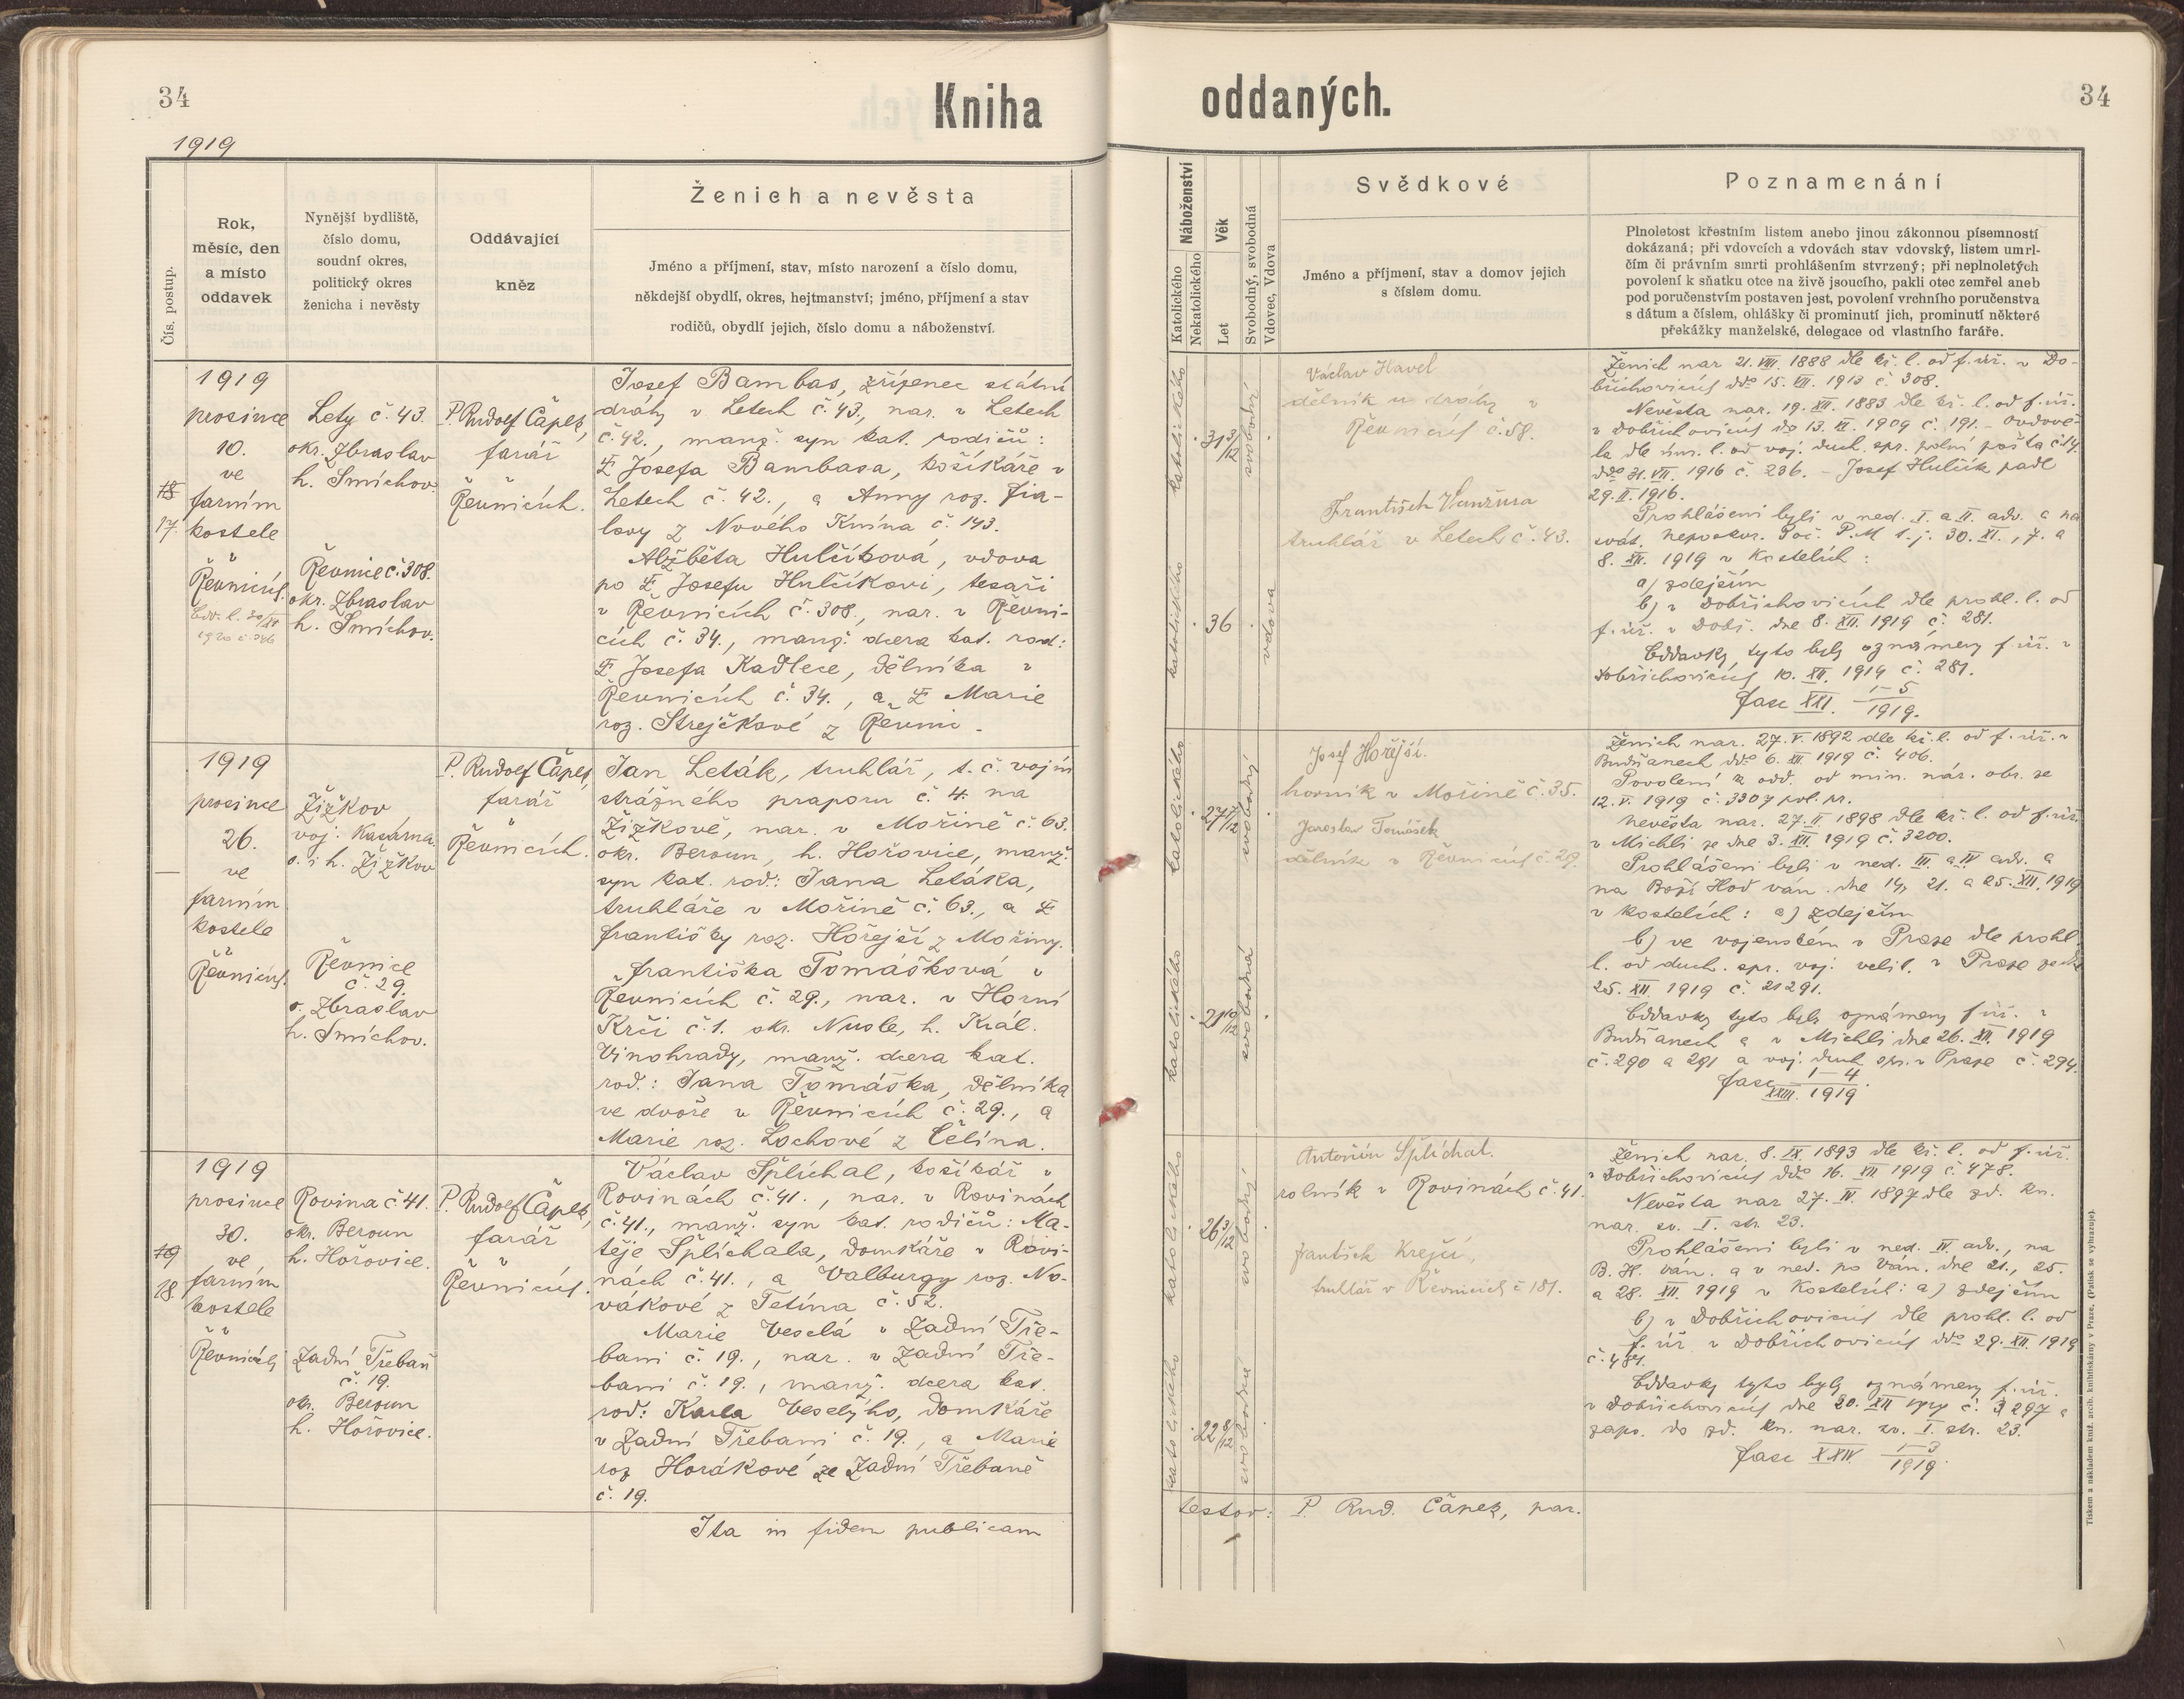 34
Kniha
oddaných.
34
1919
Čís. postup.
Rok,
měsíc, den
a místo
oddavek
Nynější bydliště,
číslo domu,
soudní okres,
politický okres
ženicha i nevěsty
Oddávající
kněz
Ženich a nevěsta
Jméno a příjmení, stav, místo narození a číslo domu,
někdejší obydlí, okres, hejtmanství; jméno, příjmení a stav
rodičů, obydlí jejich, číslo domu a náboženství.
Náboženství
Katolického
Nekatolického
Věk
Let
Svobodný, svobodná
Vdovec, Vdova
Svědkové
Jméno a příjmení, stav a domov jejich
s číslem domu.
Poznamenání
Plnoletost křestním listem anebo jinou zákonnou písemností
dokázaná; při vdovcích a vdovách stav vdovský, listem umrl-
čím či právním smrti prohlášením stvrzený; při neplnoletých
povolení k sňatku otce na živě jsoucího, pakli otec zemřel aneb
pod poručenstvím postaven jest, povolení vrchního poručenstva
s dátum a číslem, ohlášky či prominutí jich, prominutí některé
překážky manželské, delegace od vlastního faráře.
18
17.
1919
prosince
10.
ve
farním
kostele
v
Řevnicích.
Lety č. 43.
okr. Zbraslav
h. Smíchov.
Řevnice č. 308.
okr. Zbraslav
h. Smíchov.
P. Rudolf Čápek,
farář
v
Řevnicích.
Josef Bambas, zřízenec státní
dráhy v Letech č. 43., nar. v Letech
č. 42., manž. syn kat. rodičů:
Josefa Bambasa, košíkáře v
Letech č. 42., a Anny roz. Fia-
lovy z Nového Knína č. 143.
Alžběta Hulčíková, vdova
po Josefu Hulčíkovi, tesaři
v Řevnicích č. 308., nar. v Řevni-
cích č. 34., manž. dcera kat. rod:
Josefa Kadlece, dělníka v
Řevnicích č. 34., a Marie
roz. Strejčkové z Řevnic.
katolického
31 3/12
svobodný
katolického
36
vdova
Václav Havel
dělník u dráhy v
Řevnicích č. 58.
František Vanžura
truhlář v Letech č. 43.
Ženich nar. 21. VIII. 1888 dle kř. l. od f. úř. v Do-
břichovicích ddo 15. VII. 1913 č. 308.
Nevěsta nar. 19. XII. 1883 dle kř. l. od f. úř.
v Dobřichovicích do 13. VI. 1909 č. 191. – Ovdově-
la dle úm. l. od voj. duch. spr. polní pošta č. 14.
ddo 31. VII. 1916 č. 236. – Josef Hulčík padl
29. II. 1916.
Prohlášeni byli v ned. I. a II. adv. a na
svát. Neposkvr. Poč. P. M. t. j. 30. XI., 7. a
8. XII. 1919 v kostelích:
a) zdejším
b) v Dobřichovicích dle prohl. l. od
f. úř. v Dobř. dne 8. XII. 1919 č. 281.
Oddavky tyto byly oznámeny f. úř. v
Dobřichovicích 10. XII. 1919 č. 281.
fasc XXI. 1–5
1919.
—
1919
prosince
26.
ve
farním
kostele
v
Řevnicích.
Žižkov
voj. kasárna.
o. i h. Žižkov
Řevnice
č. 29.
o. Zbraslav
h. Smíchov.
P. Rudolf Čápek,
farář
v
Řevnicích.
Jan Leták, truhlář, t. č. vojín
strážného praporu č. 4. na
Žižkově, nar. v Mořině č. 63.
okr. Beroun, h. Hořovice, manž.
syn kat. rod.: Jana Letáka,
truhláře v Mořině č. 63., a
Františky roz. Hořejší z Mořiny.
Františka Tomášková v
Řevnicích č. 29., nar. v Horní
Krči č. 1. okr. Nusle, h. Král.
Vinohrady, manž. dcera kat.
rod.: Jana Tomáška, dělníka
ve dvoře v Řevnicích č. 29., a
Marie roz. Lochové z Čelína.
katolického
27 7/12
svobodný
katolického
21 10/12
svobodná
Josef Hořejší.
horník v Mořině č. 35.
Jaroslav Tomášek
dělník v Řevnicích č. 29.
Ženich nar. 27. V. 1892 dle kř. l. od f. úř. v
Budňanech ddo 6. XII. 1919 č. 406.
Povolení k odd. od min. nár. obr. ze
12. V. 1919 č. 3307 pol. pr.
Nevěsta nar. 27. II 1898 dle kř. l. od f. úř.
v Michli ze dne 3. XII. 1919 č. 3200.
Prohlášeni byli v ned. III. a IV adv. a
na Boží Hod ván. dne 14, 21. a 25. XII. 1919
v kostelích: a) zdejším
b) ve vojenském v Praze dle prohl.
l. od duch. spr. voj. velit. v Praze ze dne
25. XII. 1919 č. 21291.
Oddavky tyto byly oznámeny f. úř. v
Budňanech a v Michli dne 26. XII. 1919
č. 290 a 291 a voj. duch. spr. v Praze č. 294.
fasc 1–4
XXIII. 1919.
19
18.
1919
prosince
30.
ve
farním
kostele
v
Řevnicích
Rovina č. 41.
okr. Beroun
h. Hořovice.
Zadní Třebaň
č. 19.
okr. Beroun
h. Hořovice.
P. Rudolf Čápek,
farář
v
Řevnicích.
Václav Šplíchal, košíkář v
Rovinách č. 41., nar. v Rovinách
č. 41., manž. syn kat. rodičů: Ma-
těje Šplíchala, domkáře v Rovi-
nách č. 41., a Valburgy roz. No-
vákové z Tetína č. 52.
Marie Veselá v Zadní Tře-
bani č. 19., nar. v Zadní Tře-
bani č. 19., manž. dcera kat.
rod: Karla Veselýho, domkáře
v Zadní Třebani č. 19., a Marie
roz Horákové ze Zadní Třebaně
č. 19.
katolického
26 3/12
svobodný
katolického
22 8/12
svobodná
Antonín Šplíchal.
rolník v Rovinách č. 41.
František Krejčí,
truhlář v Řevnicích č 181.
Ženich nar. 8. IX. 1893 dle kř. l. od f. úř.
v Dobřichovicích ddo 16. XII 1919 č. 478.
Nevěsta nar 27. IV. 1897 dle zd. kn.
nar. sv. I. str. 23.
Prohlášeni byli v ned. IV. adv., na
B. H. ván. a v ned. po Ván. dne 21., 25.
a 28. XII. 1919 v kostelích: a) zdejším
b) v Dobřichovicích dle prohl. l. od
f. úř. v Dobřichovicích ddo 29. XII. 1919
č. 484.
Oddavky tyto byly oznámeny f. úř.
v Dobřichovicích dne 30. XII 1919 č. 297 a
zaps. do zd. kn. nar. sv. I. str. 23.
fasc XXIV 1–3
1919.
Ita in fidem publicam
testor: P. Rud. Čápek, par.
Tiskem a nákladem kníž. arcib. knihtiskárny v Praze. (Patisk se vyhrazuje).